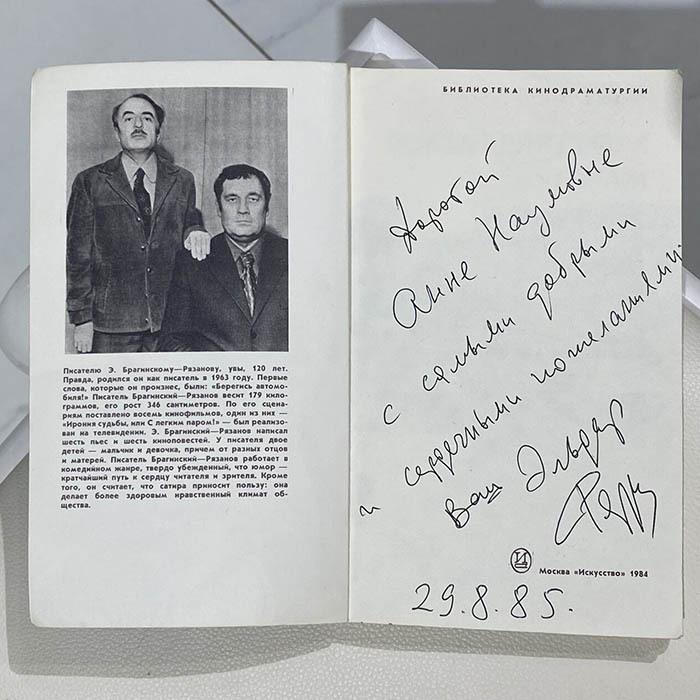 Писателю Э. Брагинскому—Рязанову, увы, 120 лет.
Правда, родился он как писатель в 1963 году. Первые
слова, которые он произнес, были: «Берегись автомо-
биля!» Писатель Брагинский—Рязанов весит 179 кило-
граммов, его рост 346 сантиметров. По его сцена-
риям поставлено восемь кинофильмов, один из них —
«Ирония судьбы, или С легким паром!» — был реализо-
ван на телевидении. Э. Брагинский-Рязанов написал
шесть пьес и шесть киноповестей. У писателя двое
детей — мальчик и девочка, причем от разных отцов
и матерей. Писатель Брагинский-Рязанов работает в
комедийном жанре, твердо убежденный, что юмор —
кратчайший путь к сердцу читателя и зрителя. Кроме
того, он считает, что сатира приносит пользу: она
делает более здоровым нравственный климат об-
щества.
БИБЛИОТЕКА КИНОДРАМАТУРГИИ
Дорогой
Анне Наумовне
с самыми добрыми
и сердечными пожеланиями.
Ваш Эльдар
Москва «Искусство» 1984
29.8.85.